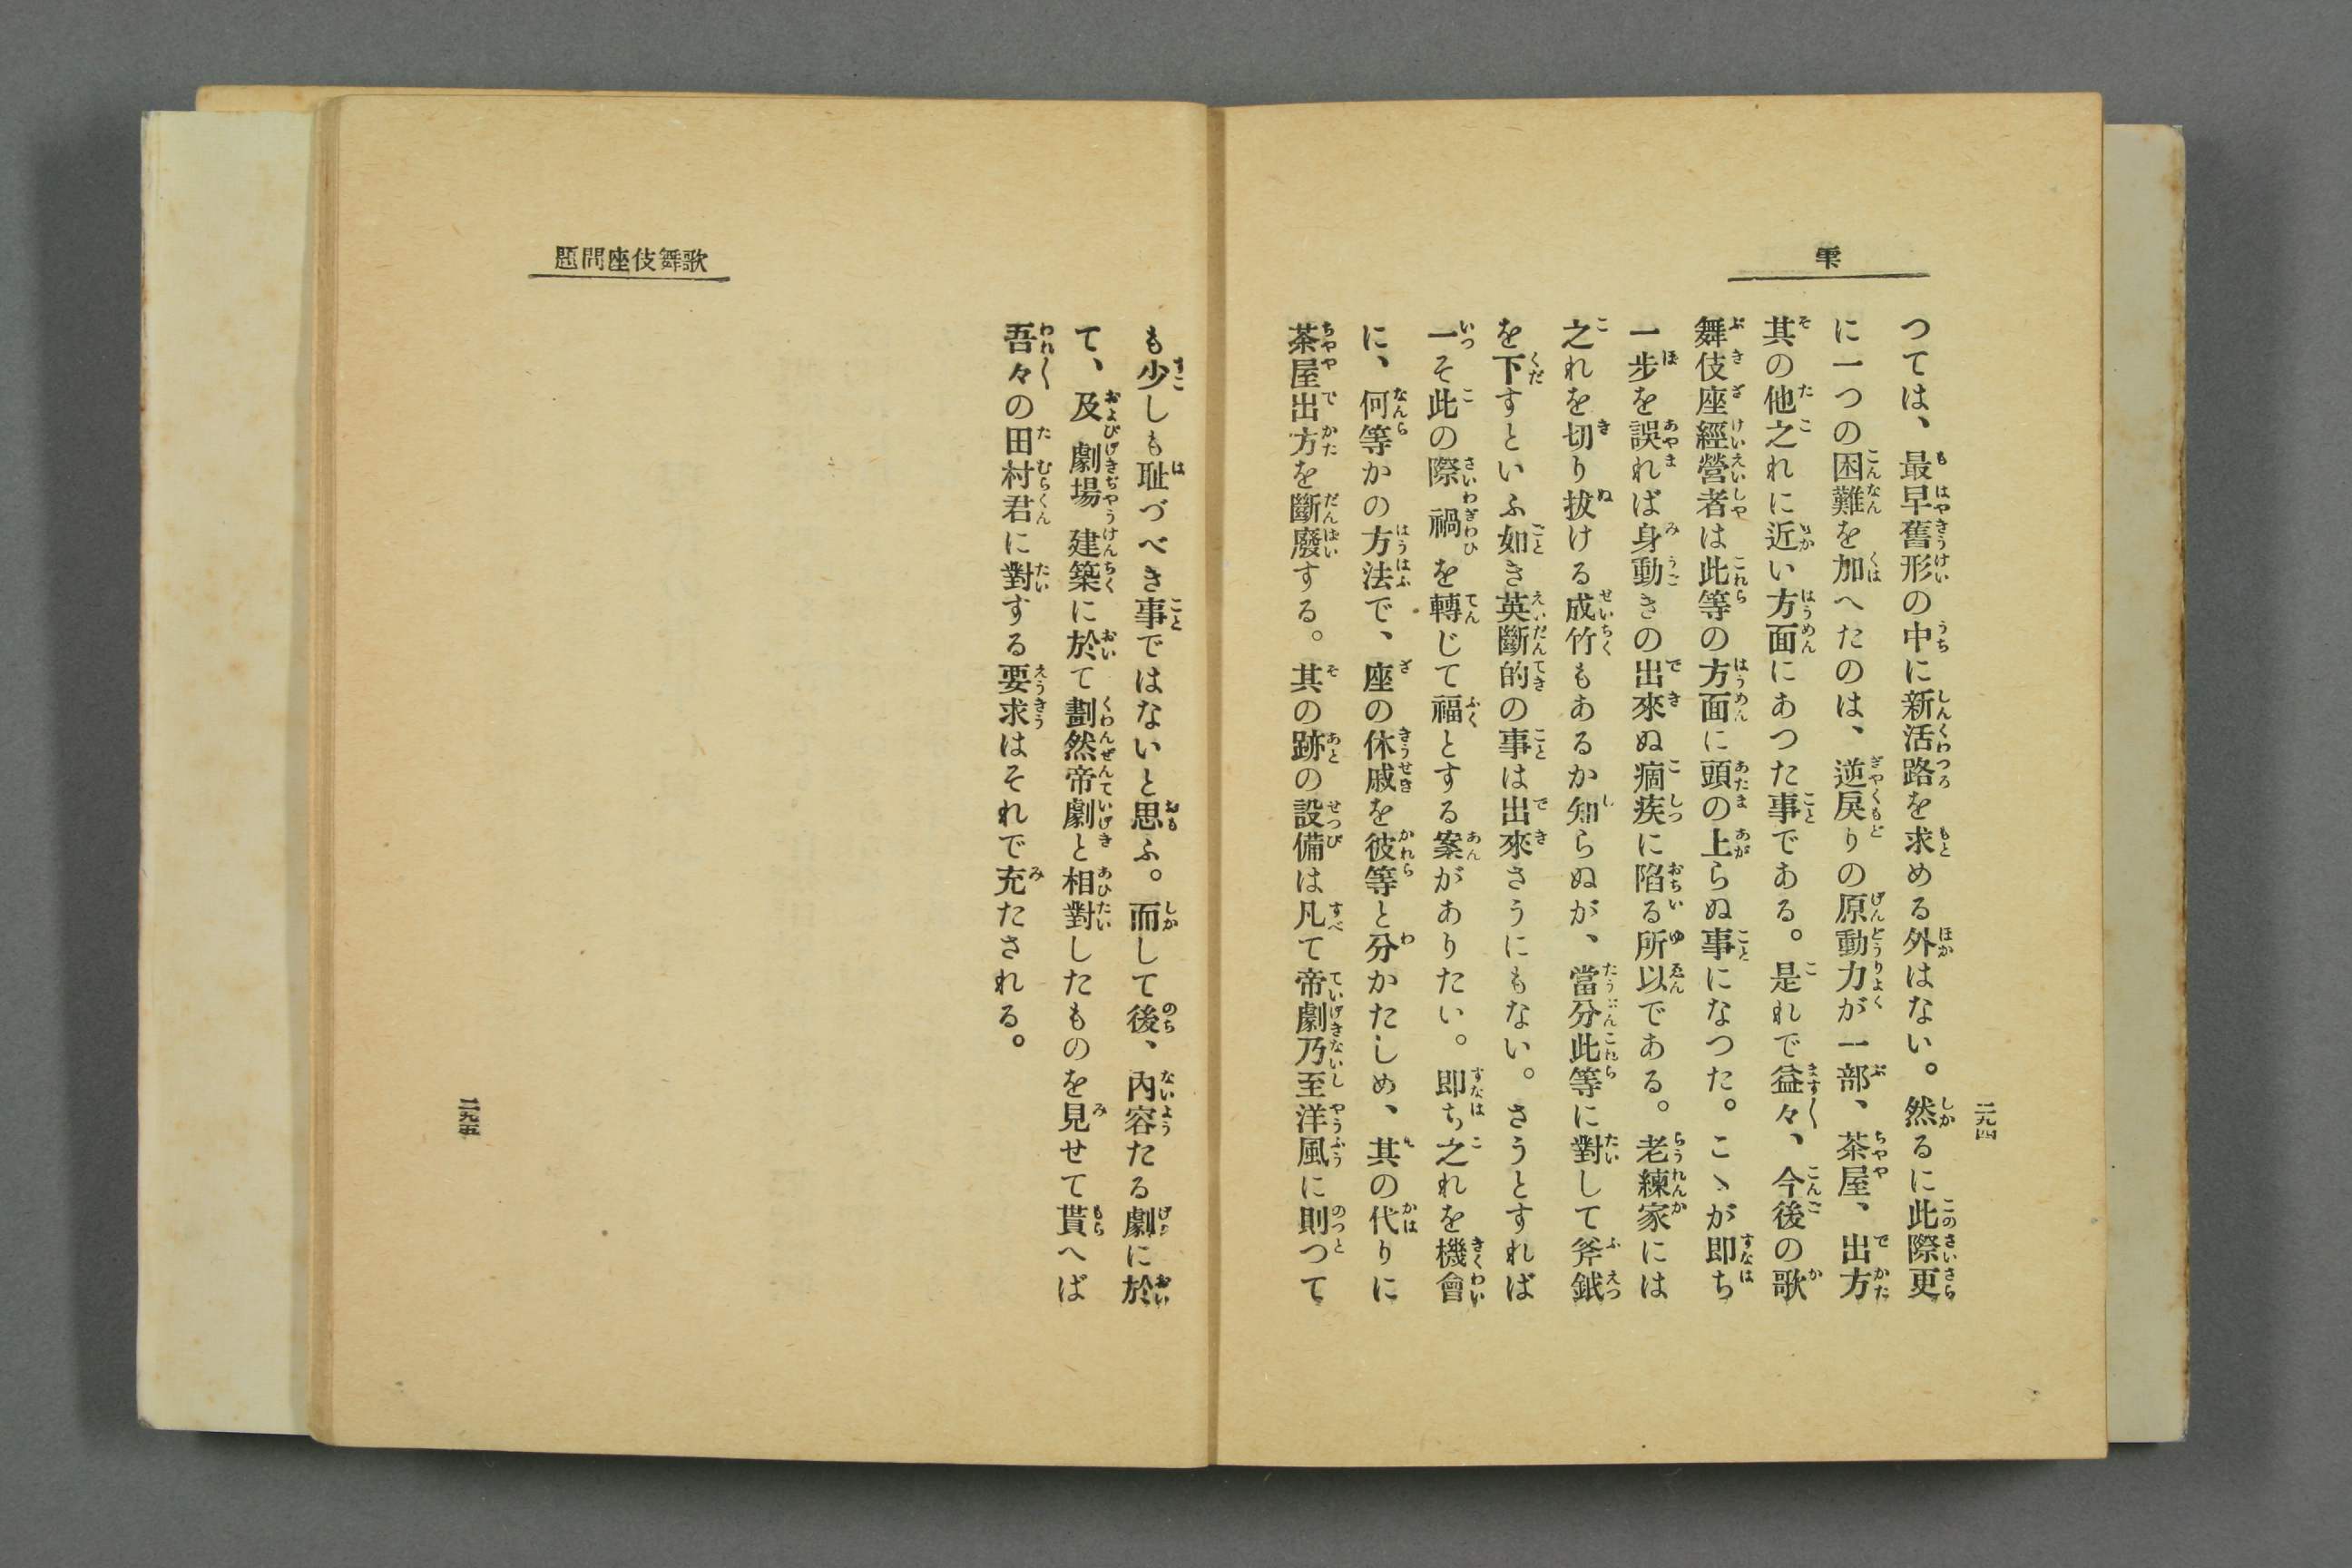 雫
二九四
つては、最早舊形の中に新活路を求める外はない。然るに此際更
に一つの困難を加へたのは、逆戻りの原動力が一部、茶屋、出方
其の他之れに近い方面にあつた事である。是れで益々、今後の歌
舞伎座經營者は此等の方面に頭の上らぬ事になつた。こゝが即ち
一步を誤れば身動きの出來ぬ痼疾に陷る所以である。老練家には
之れを切り拔ける成竹もあるか知らぬが、當分此等に對して斧鉞
を下すといふ如き英斷的の事は出來さうにもない。さうとすれば
一そ此の際禍を轉じて福とする案がありたい。即ち之れを機會
に、何等かの方法で、座の休戚を彼等と分かたしめ、其の代りに
茶屋出方を斷廢する。其の跡の設備は凡て帝劇乃至洋風に則つて
歌舞伎座問題
も少しも耻づべき事ではないと思ふ。而して後、內容たる劇に於
て、及劇場建築に於て劃然帝劇と相對したものを見せて貰へば
吾々の田村君に對する要求はそれで充たされる。
二九五